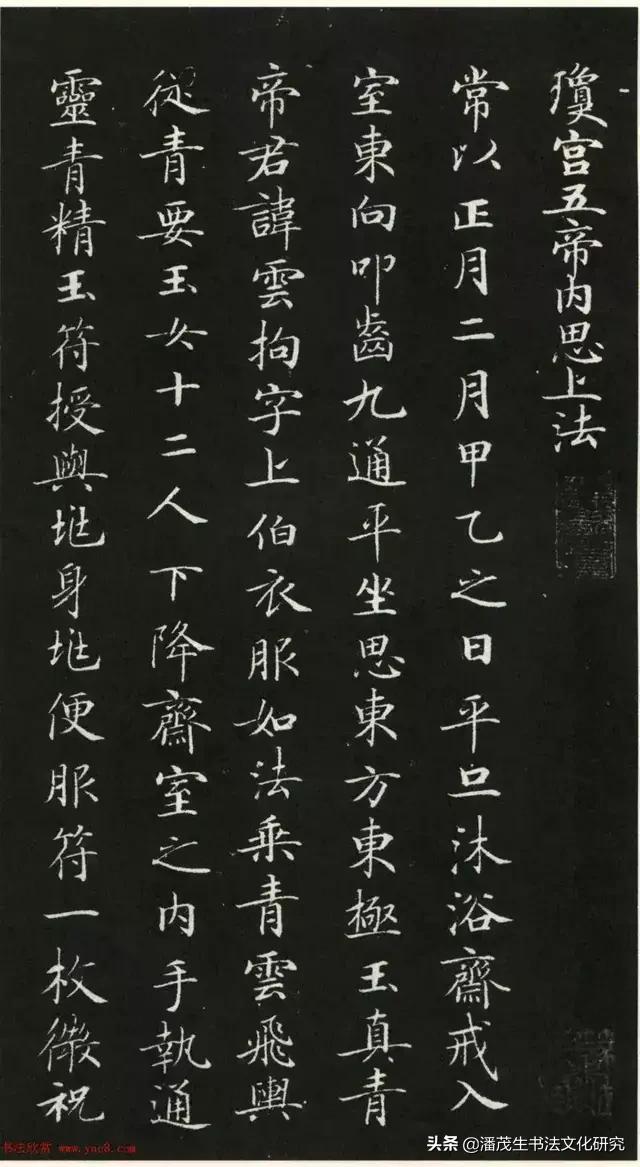 瓊宫五帝内思上法
常以正月二月甲乙之日平旦沐浴齋戒入
室東向叩齒九通平坐思東方東極玉真青
帝君諱雲拘字上伯衣服如法乗青雲飛輿
從青要玉女十二人下降齋室之内手執通
靈青精玉符授與兆身兆便服符一枚微祝
书法欣赏 www.yac8.com
头条 @潘茂生书法文化研究